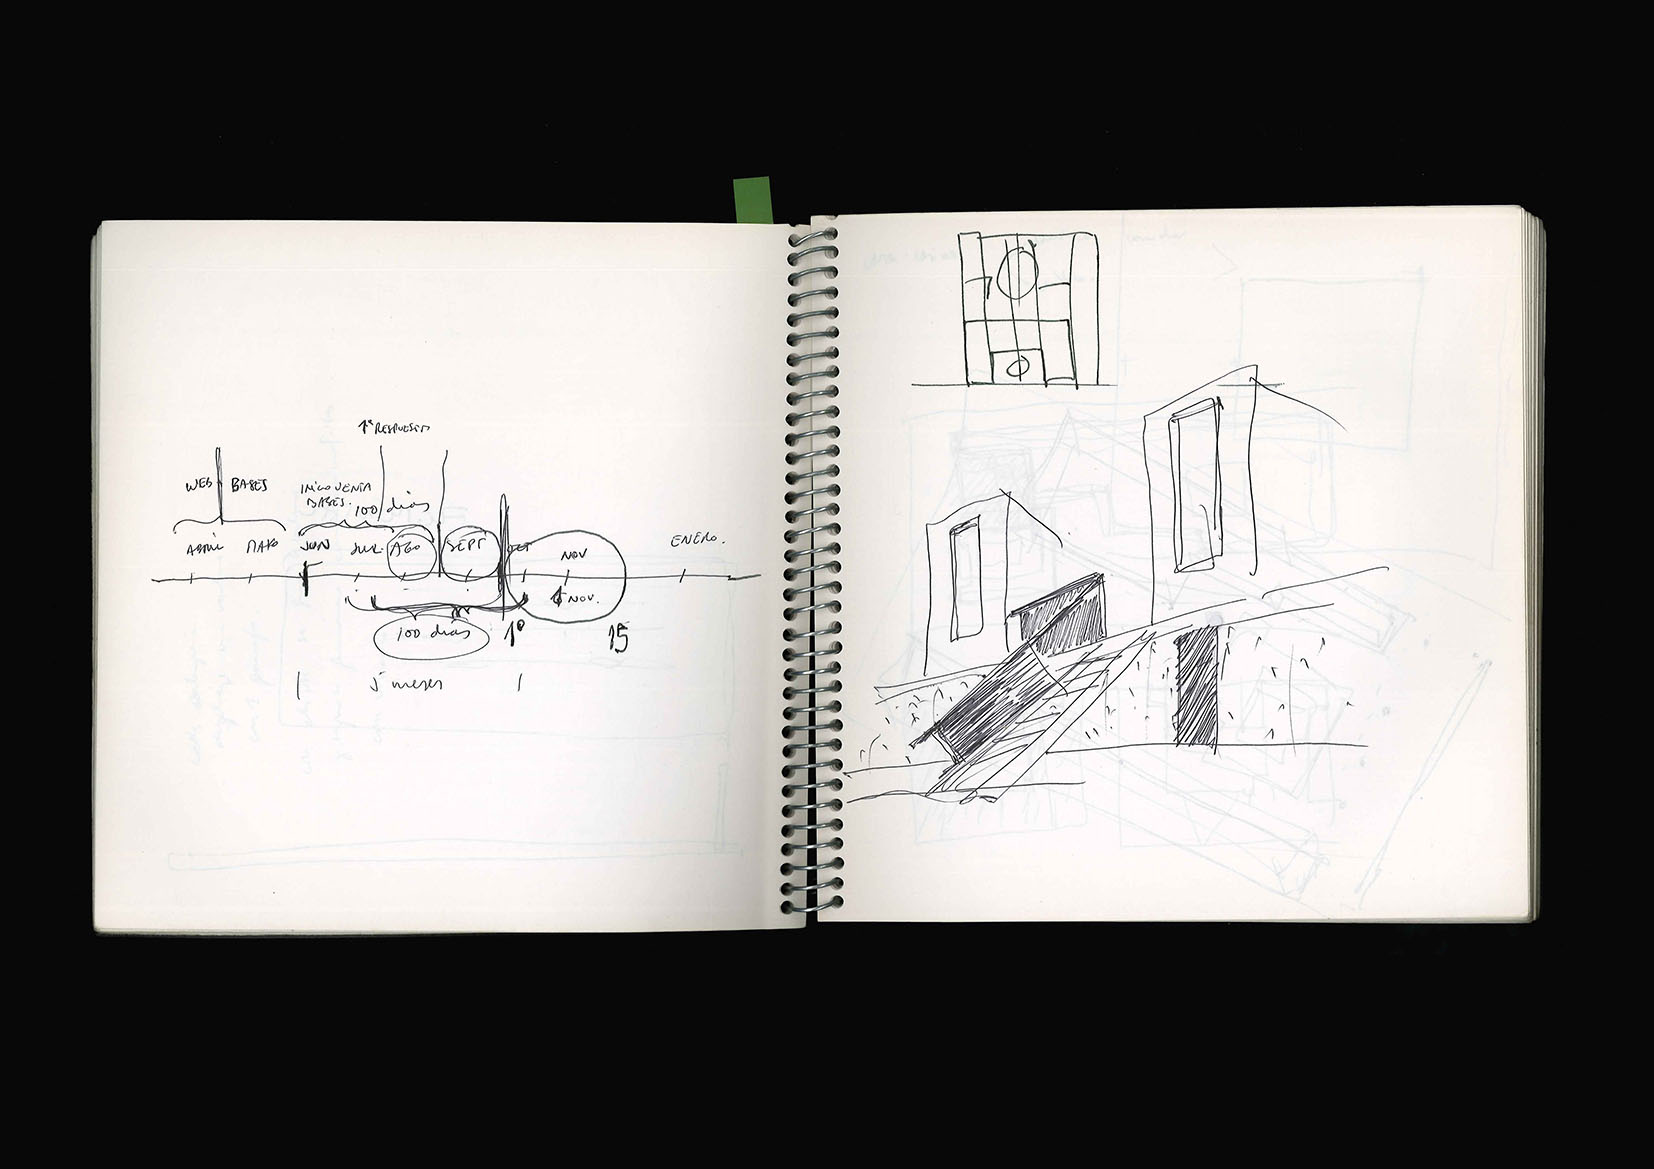 1ª RESPUESTA
WEB BASES
INICIO VENTA
BASES.
100 días
ABRIL MAYO JUN JUL. AGO SEPT OCT NOV ENERO.
NOV.
100 días 1º 15
5 meses